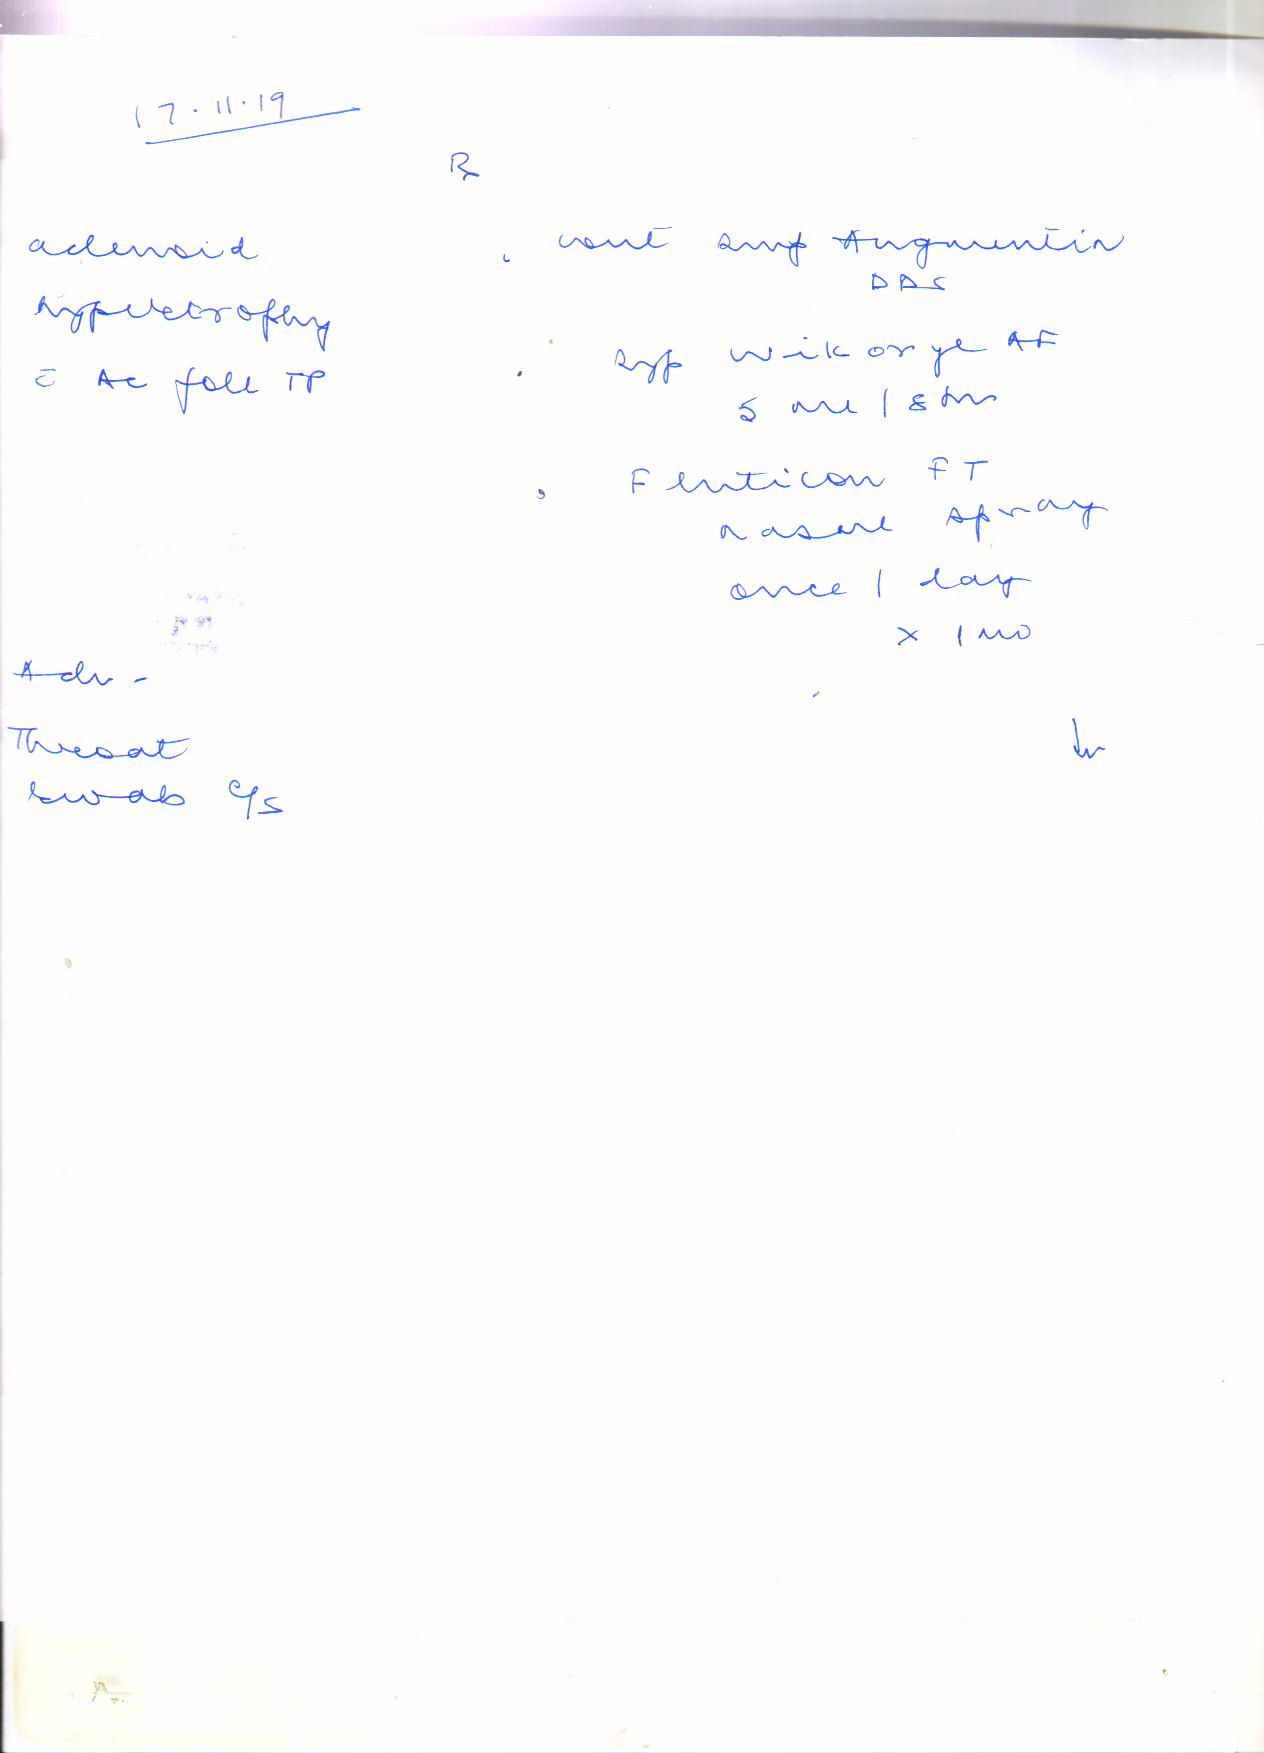 17.11.19
Rx
adenoid
hypertrophy
c̄ Ac foll TP
cont syp Augmentin
DDS
syp Wikoryl AF
5 ml / 8 hrs
Fluticon FT
nasal spray
once / day
x 1 mo
Adv -
Throat
swab C/S